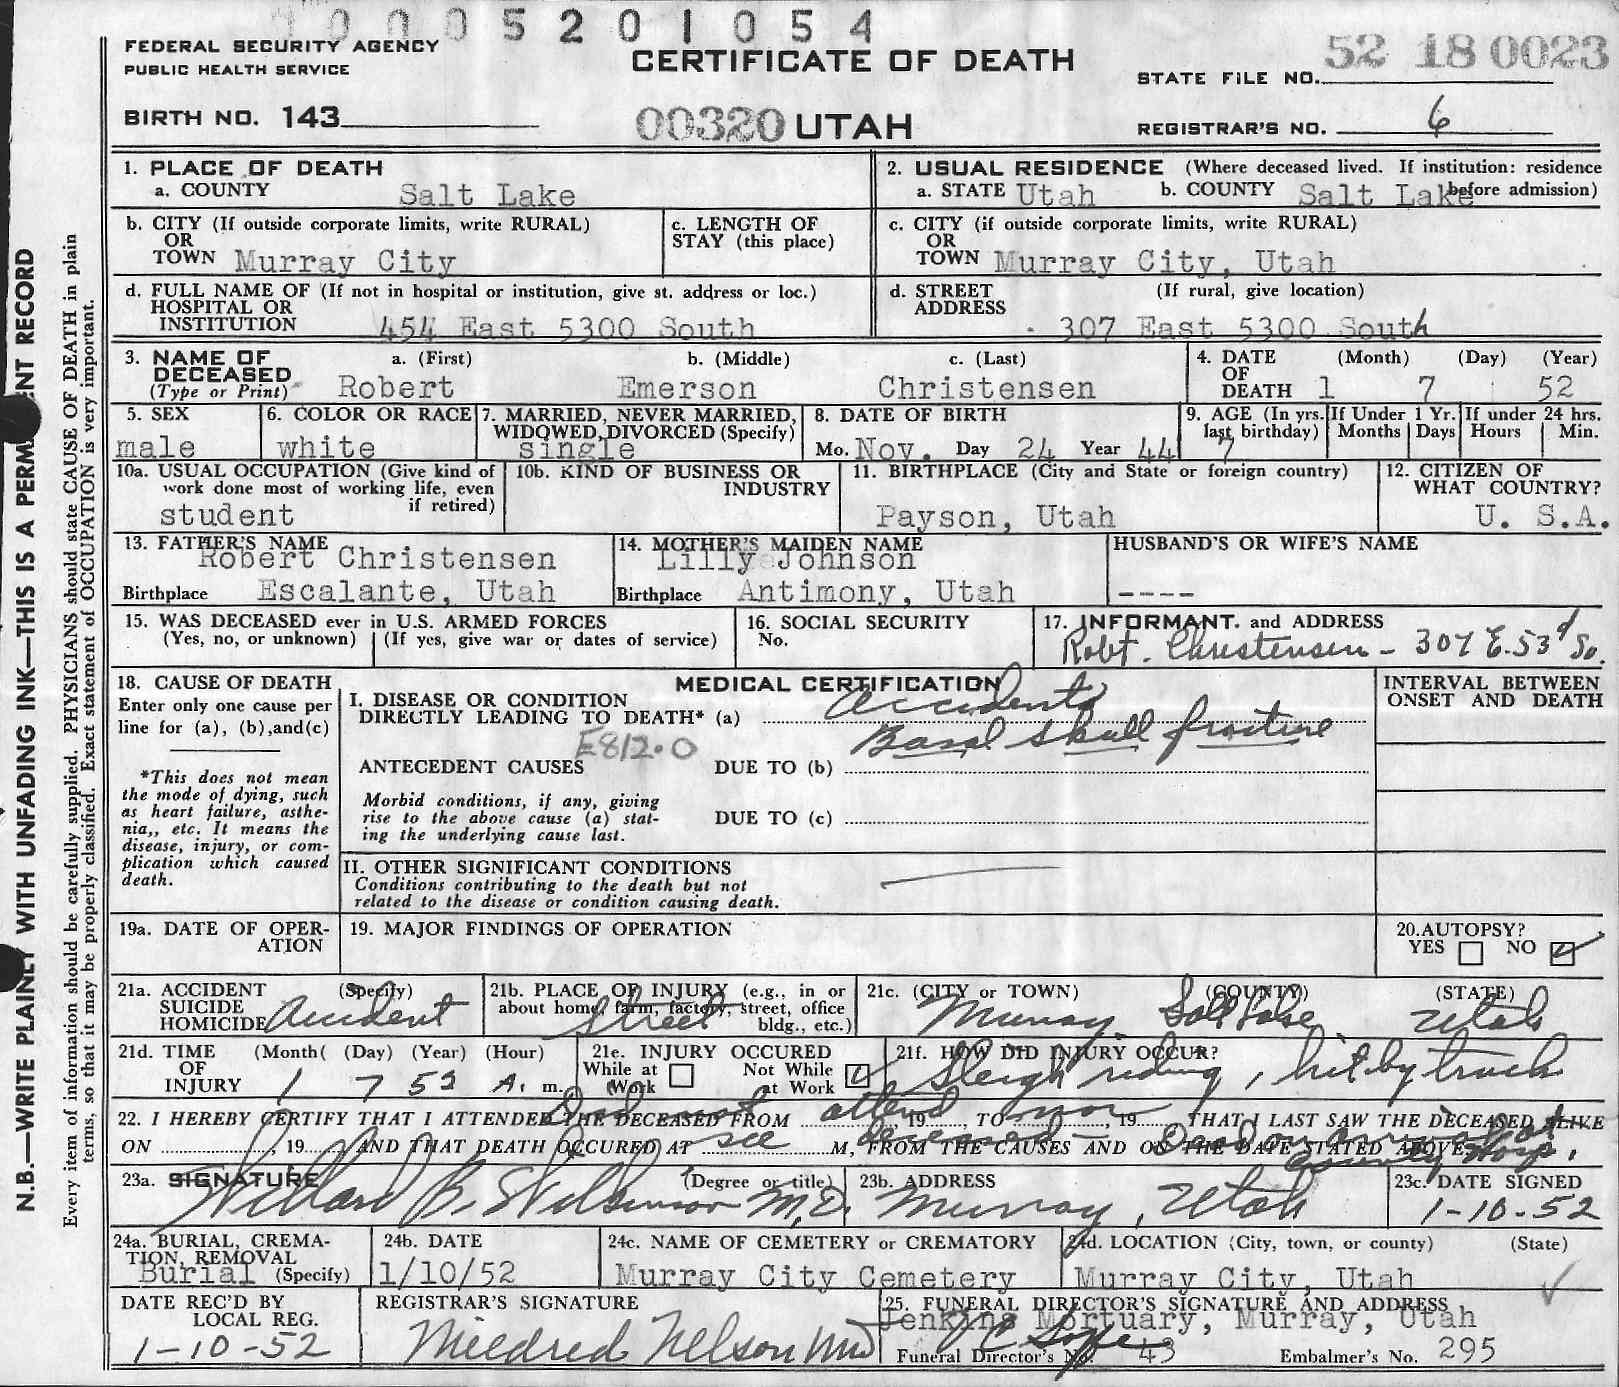 0005201054
FEDERAL SECURITY AGENCY
PUBLIC HEALTH SERVICE
CERTIFICATE OF DEATH
STATE FILE NO. 52 18 0023
BIRTH NO. 143
00320 UTAH
REGISTRAR'S NO. 6
N.B.—WRITE PLAINLY WITH UNFADING INK—THIS IS A PERMANENT RECORD
Every item of information should be carefully supplied. PHYSICIANS should state CAUSE OF DEATH in plain
terms, so that it may be properly classified. Exact statement of OCCUPATION is very important.
1. PLACE OF DEATH
a. COUNTY Salt Lake
2. USUAL RESIDENCE (Where deceased lived. If institution: residence
before admission)
a. STATE Utah b. COUNTY Salt Lake
b. CITY (If outside corporate limits, write RURAL)
OR
TOWN Murray City
c. LENGTH OF
STAY (this place)
c. CITY (if outside corporate limits, write RURAL)
OR
TOWN Murray City, Utah
d. FULL NAME OF (If not in hospital or institution, give st. address or loc.)
HOSPITAL OR
INSTITUTION 454 East 5300 South
d. STREET (If rural, give location)
ADDRESS 307 East 5300 South
3. NAME OF DECEASED (Type or Print)
a. (First) b. (Middle) c. (Last)
Robert Emerson Christensen
4. DATE OF DEATH (Month) (Day) (Year)
1 7 52
5. SEX
male
6. COLOR OR RACE
white
7. MARRIED, NEVER MARRIED,
WIDOWED, DIVORCED (Specify)
single
8. DATE OF BIRTH
Mo. Nov. Day 24 Year 44
9. AGE (In yrs. last birthday) 7
If Under 1 Yr. Months Days
If under 24 hrs. Hours Min.
10a. USUAL OCCUPATION (Give kind of
work done most of working life, even
if retired)
student
10b. KIND OF BUSINESS OR
INDUSTRY
11. BIRTHPLACE (City and State or foreign country)
Payson, Utah
12. CITIZEN OF
WHAT COUNTRY?
U. S.A.
13. FATHER'S NAME
Robert Christensen
Birthplace Escalante, Utah
14. MOTHER'S MAIDEN NAME
Lilly Johnson
Birthplace Antimony, Utah
HUSBAND'S OR WIFE'S NAME
----
15. WAS DECEASED ever in U.S. ARMED FORCES
(Yes, no, or unknown) (If yes, give war or dates of service)
16. SOCIAL SECURITY
No.
17. INFORMANT. and ADDRESS
Robt. Christensen - 307 E. 53d So.
18. CAUSE OF DEATH
Enter only one cause per
line for (a), (b),and(c)
*This does not mean
the mode of dying, such
as heart failure, asthe-
nia,, etc. It means the
disease, injury, or com-
plication which caused
death.
MEDICAL CERTIFICATION
I. DISEASE OR CONDITION
DIRECTLY LEADING TO DEATH* (a) Accidents
Basal skull fracture
E812.0
ANTECEDENT CAUSES DUE TO (b)
Morbid conditions, if any, giving
rise to the above cause (a) stat-
ing the underlying cause last.
DUE TO (c)
II. OTHER SIGNIFICANT CONDITIONS
Conditions contributing to the death but not
related to the disease or condition causing death.
INTERVAL BETWEEN
ONSET AND DEATH
19a. DATE OF OPER-
ATION
19. MAJOR FINDINGS OF OPERATION
20.AUTOPSY?
YES NO
21a. ACCIDENT (Specify)
SUICIDE
HOMICIDE Accident
21b. PLACE OF INJURY (e.g., in or
about home, farm, factory, street, office
bldg., etc.)
Street
21c. (CITY or TOWN) (COUNTY) (STATE)
Murray Salt Lake Utah
21d. TIME OF INJURY (Month( (Day) (Year) (Hour)
1 7 52 A. m.
21e. INJURY OCCURED
While at Work Not While at Work
21f. HOW DID INJURY OCCUR?
Sleigh riding, hit by truck
22. I HEREBY CERTIFY THAT I ATTENDED THE DECEASED FROM , 19 TO , 19 THAT I LAST SAW THE DECEASED ALIVE
Did not attend nor
ON , 19 AND THAT DEATH OCCURED AT M, FROM THE CAUSES AND ON THE DATE STATED ABOVE.
see deceased - Dead on arrival at
County Hosp.
23a. SIGNATURE (Degree or title)
Willard B. Wilkinson M.D.
23b. ADDRESS
Murray, Utah
23c. DATE SIGNED
1-10-52
24a. BURIAL, CREMA-
TION, REMOVAL
Burial (Specify)
24b. DATE
1/10/52
24c. NAME OF CEMETERY or CREMATORY
Murray City Cemetery
24d. LOCATION (City, town, or county) (State)
Murray City, Utah
DATE REC'D BY
LOCAL REG.
1-10-52
REGISTRAR'S SIGNATURE
Mildred Nelson
25. FUNERAL DIRECTOR'S SIGNATURE AND ADDRESS
Jenkins Mortuary, Murray, Utah
Funeral Director's No. 43 Embalmer's No. 295